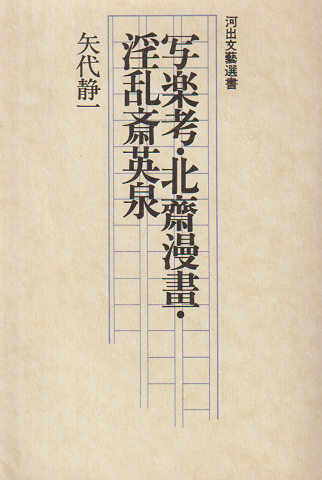 河出文藝選書
写楽考・北齋漫畫・
淫乱斎英泉
矢代静一